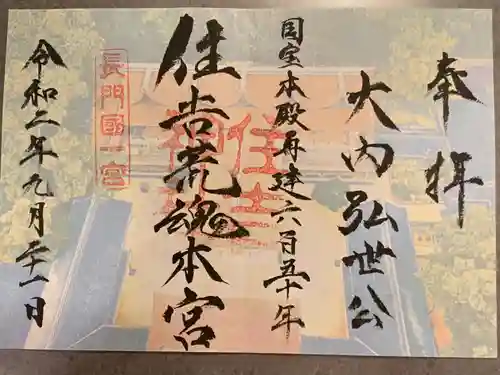 奉拝
大内弘世公
国宝本殿再建六百五十年
住吉荒魂本宮
長門國一宮
令和二年九月二十一日